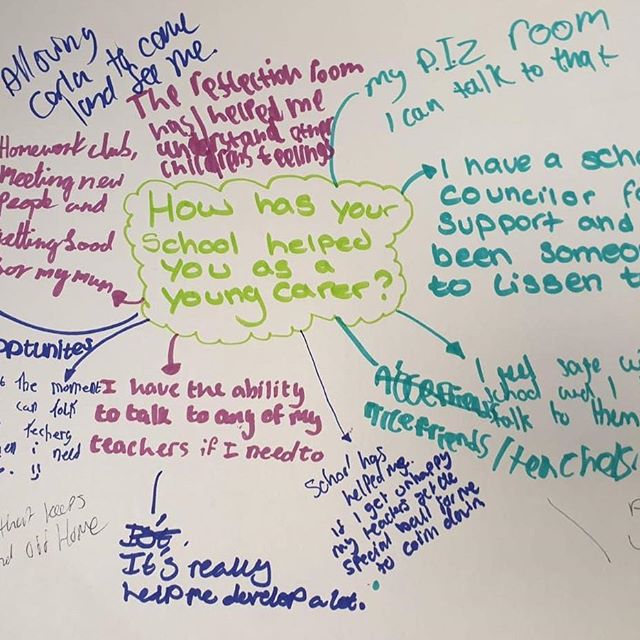 Allowing
Carla to come
and see me.
The reflection room
has helped me
understand other
childrens feelings
my P.I.Z room
I can talk to that
Homework club,
meeting new
people and
getting food
for my mum
How has your
school helped
you as a
young carer?
I have a scho
councilor f
support and
been someo
to Lissen t
opptunites
I have the ability
to talk to any of my
teachers if I need to
It's really
help me develop a lot.
School has
helped me.
if I get unhappy
my teachers get the
special ball for me
to calm down
nice friends/teachers
I feel safe wi
school and I
talk to them
t the moment
can talk
teachers
need
that keeps
Home